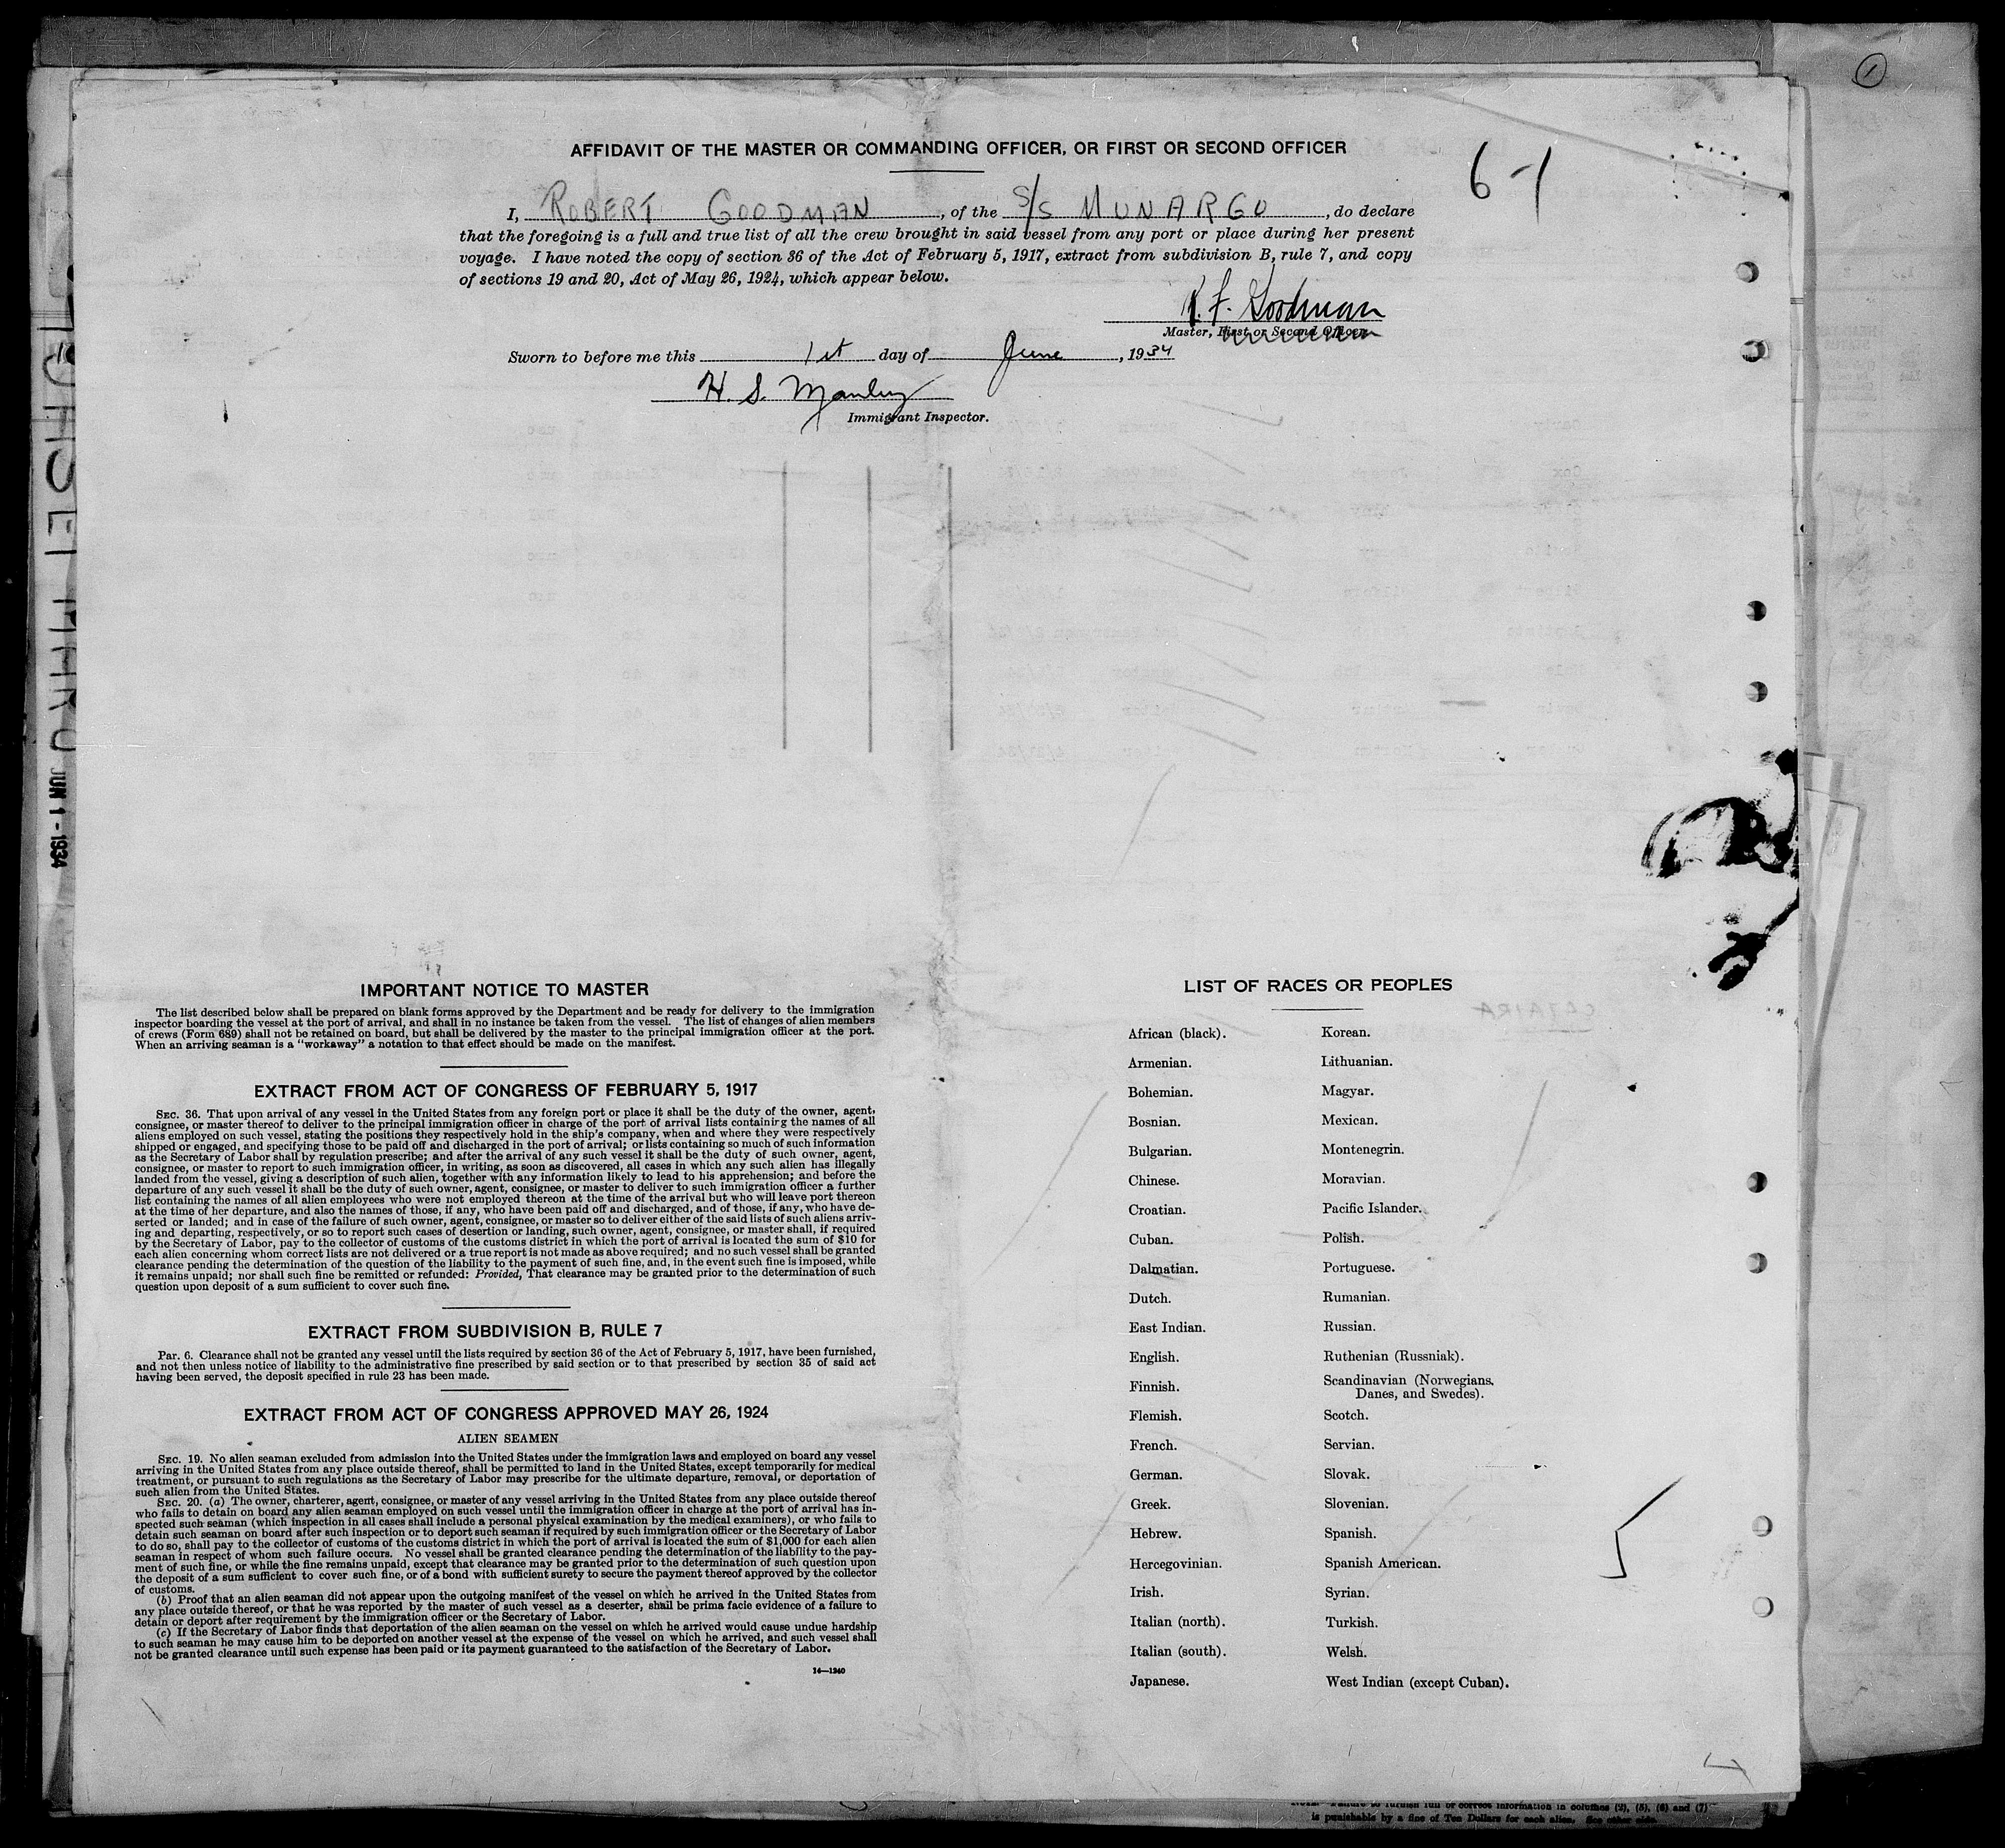 1
AFFIDAVIT OF THE MASTER OR COMMANDING OFFICER, OR FIRST OR SECOND OFFICER
6-1
I, ROBERT GOODMAN, of the S/S MUNARGO, do declare
that the foregoing is a full and true list of all the crew brought in said vessel from any port or place during her present
voyage. I have noted the copy of section 36 of the Act of February 5, 1917, extract from subdivision B, rule 7, and copy
of sections 19 and 20, Act of May 26, 1924, which appear below.
R. F. Goodman
Master, First or Second Officer.
Sworn to before me this 1st day of June, 1934
H. S. Manley
Immigrant Inspector.
JUN 1 - 1934
IMPORTANT NOTICE TO MASTER
The list described below shall be prepared on blank forms approved by the Department and be ready for delivery to the immigration
inspector boarding the vessel at the port of arrival, and shall in no instance be taken from the vessel. The list of changes of alien members
of crews (Form 689) shall not be retained on board, but shall be delivered by the master to the principal immigration officer at the port.
When an arriving seaman is a "workaway" a notation to that effect should be made on the manifest.
EXTRACT FROM ACT OF CONGRESS OF FEBRUARY 5, 1917
SEC. 36. That upon arrival of any vessel in the United States from any foreign port or place it shall be the duty of the owner, agent,
consignee, or master thereof to deliver to the principal immigration officer in charge of the port of arrival lists containing the names of all
aliens employed on such vessel, stating the positions they respectively hold in the ship's company, when and where they were respectively
shipped or engaged, and specifying those to be paid off and discharged in the port of arrival; or lists containing so much of such information
as the Secretary of Labor shall by regulation prescribe; and after the arrival of any such vessel it shall be the duty of such owner, agent,
consignee, or master to report to such immigration officer, in writing, as soon as discovered, all cases in which any such alien has illegally
landed from the vessel, giving a description of such alien, together with any information likely to lead to his apprehension; and before the
departure of any such vessel it shall be the duty of such owner, agent, consignee, or master to deliver to such immigration officer a further
list containing the names of all alien employees who were not employed thereon at the time of the arrival but who will leave port thereon
at the time of her departure, and also the names of those, if any, who have been paid off and discharged, and of those, if any, who have de-
serted or landed; and in case of the failure of such owner, agent, consignee, or master so to deliver either of the said lists of such aliens arriv-
ing and departing, respectively, or so to report such cases of desertion or landing, such owner, agent, consignee, or master shall, if required
by the Secretary of Labor, pay to the collector of customs of the customs district in which the port of arrival is located the sum of $10 for
each alien concerning whom correct lists are not delivered or a true report is not made as above required; and no such vessel shall be granted
clearance pending the determination of the question of the liability to the payment of such fine, and, in the event such fine is imposed, while
it remains unpaid; nor shall such fine be remitted or refunded: Provided, That clearance may be granted prior to the determination of such
question upon deposit of a sum sufficient to cover such fine.
EXTRACT FROM SUBDIVISION B, RULE 7
Par. 6. Clearance shall not be granted any vessel until the lists required by section 36 of the Act of February 5, 1917, have been furnished,
and not then unless notice of liability to the administrative fine prescribed by said section or to that prescribed by section 35 of said act
having been served, the deposit specified in rule 23 has been made.
EXTRACT FROM ACT OF CONGRESS APPROVED MAY 26, 1924
ALIEN SEAMEN
SEC. 19. No alien seaman excluded from admission into the United States under the immigration laws and employed on board any vessel
arriving in the United States from any place outside thereof, shall be permitted to land in the United States, except temporarily for medical
treatment, or pursuant to such regulations as the Secretary of Labor may prescribe for the ultimate departure, removal, or deportation of
such alien from the United States.
SEC. 20. (a) The owner, charterer, agent, consignee, or master of any vessel arriving in the United States from any place outside thereof
who fails to detain on board any alien seaman employed on such vessel until the immigration officer in charge at the port of arrival has in-
spected such seaman (which inspection in all cases shall include a personal physical examination by the medical examiners), or who fails to
detain such seaman on board after such inspection or to deport such seaman if required by such immigration officer or the Secretary of Labor
to do so, shall pay to the collector of customs of the customs district in which the port of arrival is located the sum of $1,000 for each alien
seaman in respect of whom such failure occurs. No vessel shall be granted clearance pending the determination of the liability to the pay-
ment of such fine, or while the fine remains unpaid, except that clearance may be granted prior to the determination of such question upon
the deposit of a sum sufficient to cover such fine, or of a bond with sufficient surety to secure the payment thereof approved by the collector
of customs.
(b) Proof that an alien seaman did not appear upon the outgoing manifest of the vessel on which he arrived in the United States from
any place outside thereof, or that he was reported by the master of such vessel as a deserter, shall be prima facie evidence of a failure to
detain or deport after requirement by the immigration officer or the Secretary of Labor.
(c) If the Secretary of Labor finds that deportation of the alien seaman on the vessel on which he arrived would cause undue hardship
to such seaman he may cause him to be deported on another vessel at the expense of the vessel on which he arrived, and such vessel shall
not be granted clearance until such expense has been paid or its payment guaranteed to the satisfaction of the Secretary of Labor.
14—1240
LIST OF RACES OR PEOPLES
African (black).
Armenian.
Bohemian.
Bosnian.
Bulgarian.
Chinese.
Croatian.
Cuban.
Dalmatian.
Dutch.
East Indian.
English.
Finnish.
Flemish.
French.
German.
Greek.
Hebrew.
Hercegovinian.
Irish.
Italian (north).
Italian (south).
Japanese.
Korean.
Lithuanian.
Magyar.
Mexican.
Montenegrin.
Moravian.
Pacific Islander.
Polish.
Portuguese.
Rumanian.
Russian.
Ruthenian (Russniak).
Scandinavian (Norwegians,
Danes, and Swedes).
Scotch.
Servian.
Slovak.
Slovenian.
Spanish.
Spanish American.
Syrian.
Turkish.
Welsh.
West Indian (except Cuban).
Failure to furnish full or correct information in columns (2), (5), (6) and (7)
is punishable by a fine of Ten Dollars for each alien. See other side.